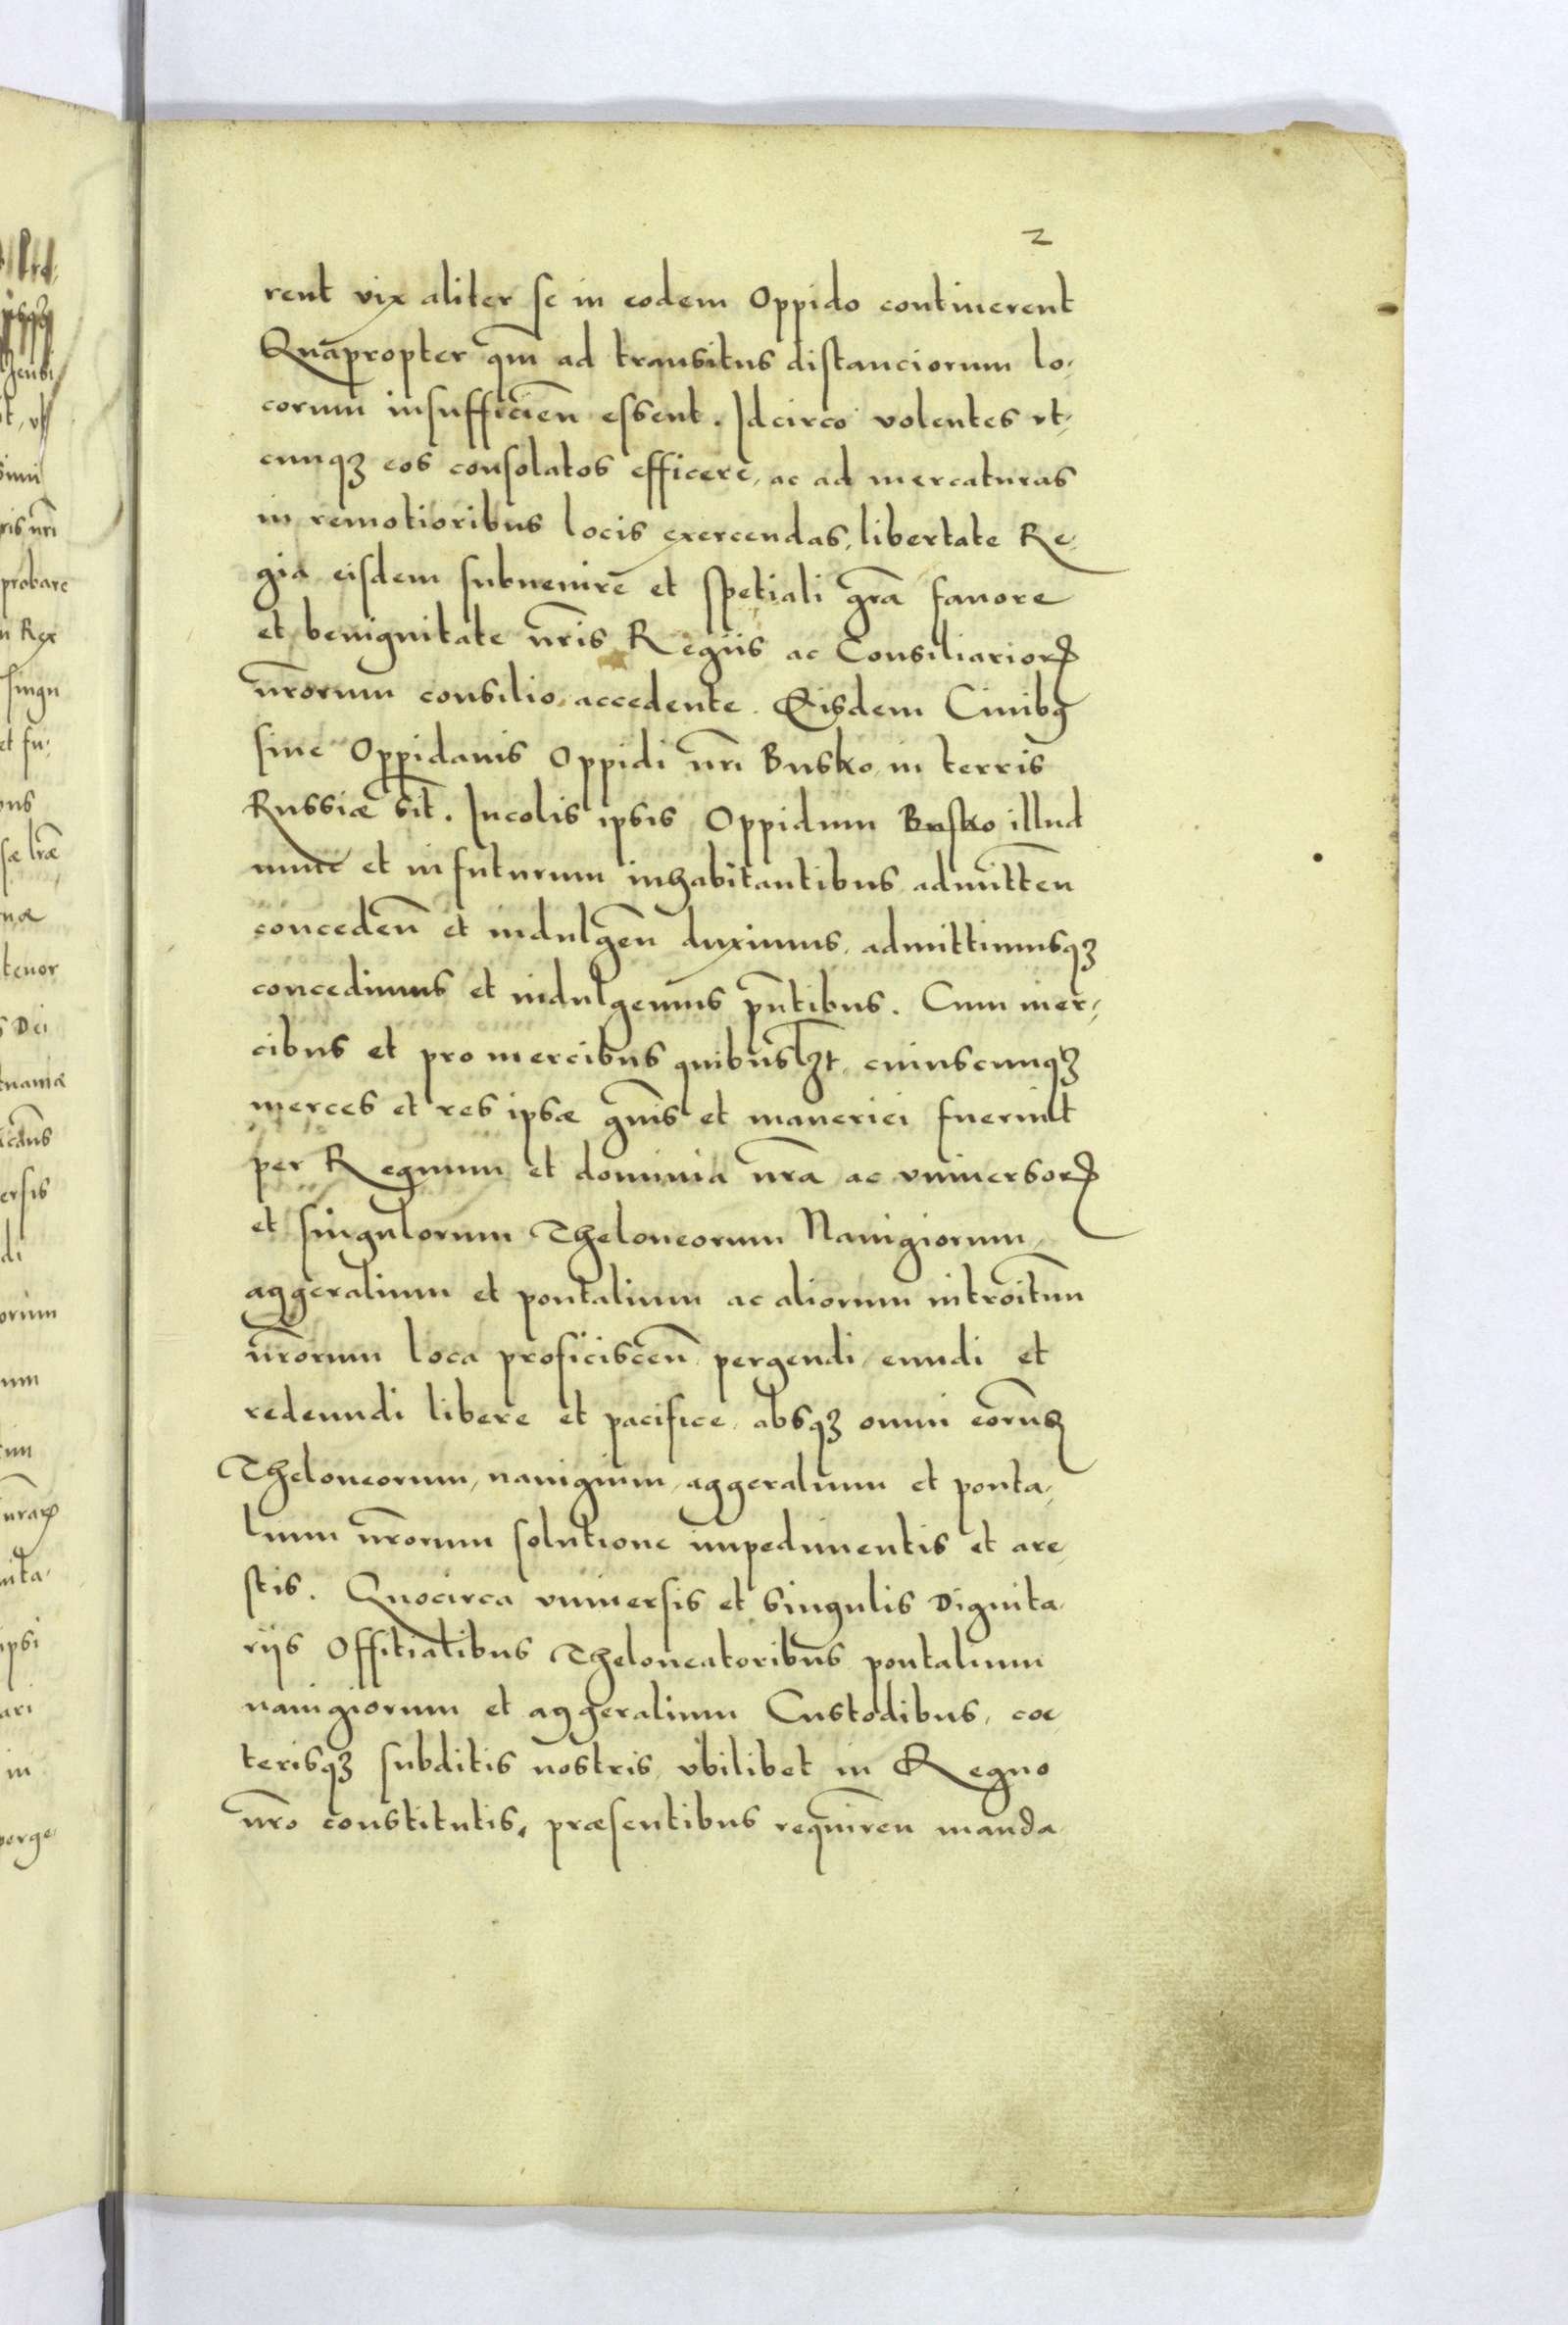 2
rent vix aliter se in eodem Oppido continerent
Quapropter qm̄ ad transitus distanciorum lo-
corum insufficien̄ essent. Idcirco volentes vt-
cunqꝫ eos consolatos efficere, ac ad mercaturas
in remotioribus locis exercendas, libertate Re-
gia eisdem subuenire et spetiali gr̄a fauore
et benignitate nr̄is Regiis ac Consiliarioꝝ
nr̄orum consilio accedente. Eisdem Ciuibꝫ
siue Oppidanis Oppidi nr̄i Busko in terris
Russiæ sit̄. Incolis ipsis Oppidum Busko illud
nunc et in futurum inhabitantibus admitten̄
conceden̄ et indulgen̄ duximus, admittimusqꝫ
concedimus et indulgemus pn̄tibus. Cum mer-
cibus et pro mercibus quibuslꝫt, cuiuscunqꝫ
merces et res ipsæ gn̄is et maneriei fuerint
per Regnum et dominia nr̄a ac vniuersoꝝ
et singulorum Theloneorum Nauigiorum,
aggeralium et pontalium ac aliorum introituu̅
nr̄orum loca proficiscen̄ pergendi, eundi et
redeundi libere et pacifice, absqꝫ omni eorun̄
Theloneorum, nauigium, aggeralium et ponta-
lium nr̄orum solutione impedimentis et are-
stis. Quocirca vniuersis et singulis Dignita-
riis Offitialibus Theloneatoribus pontalium
nauigiorum et aggeralium Custodibus, cœ
terisqꝫ subditis nostris vbilibet in Regno
nr̄o constitutis, præsentibus requiren̄ manda-